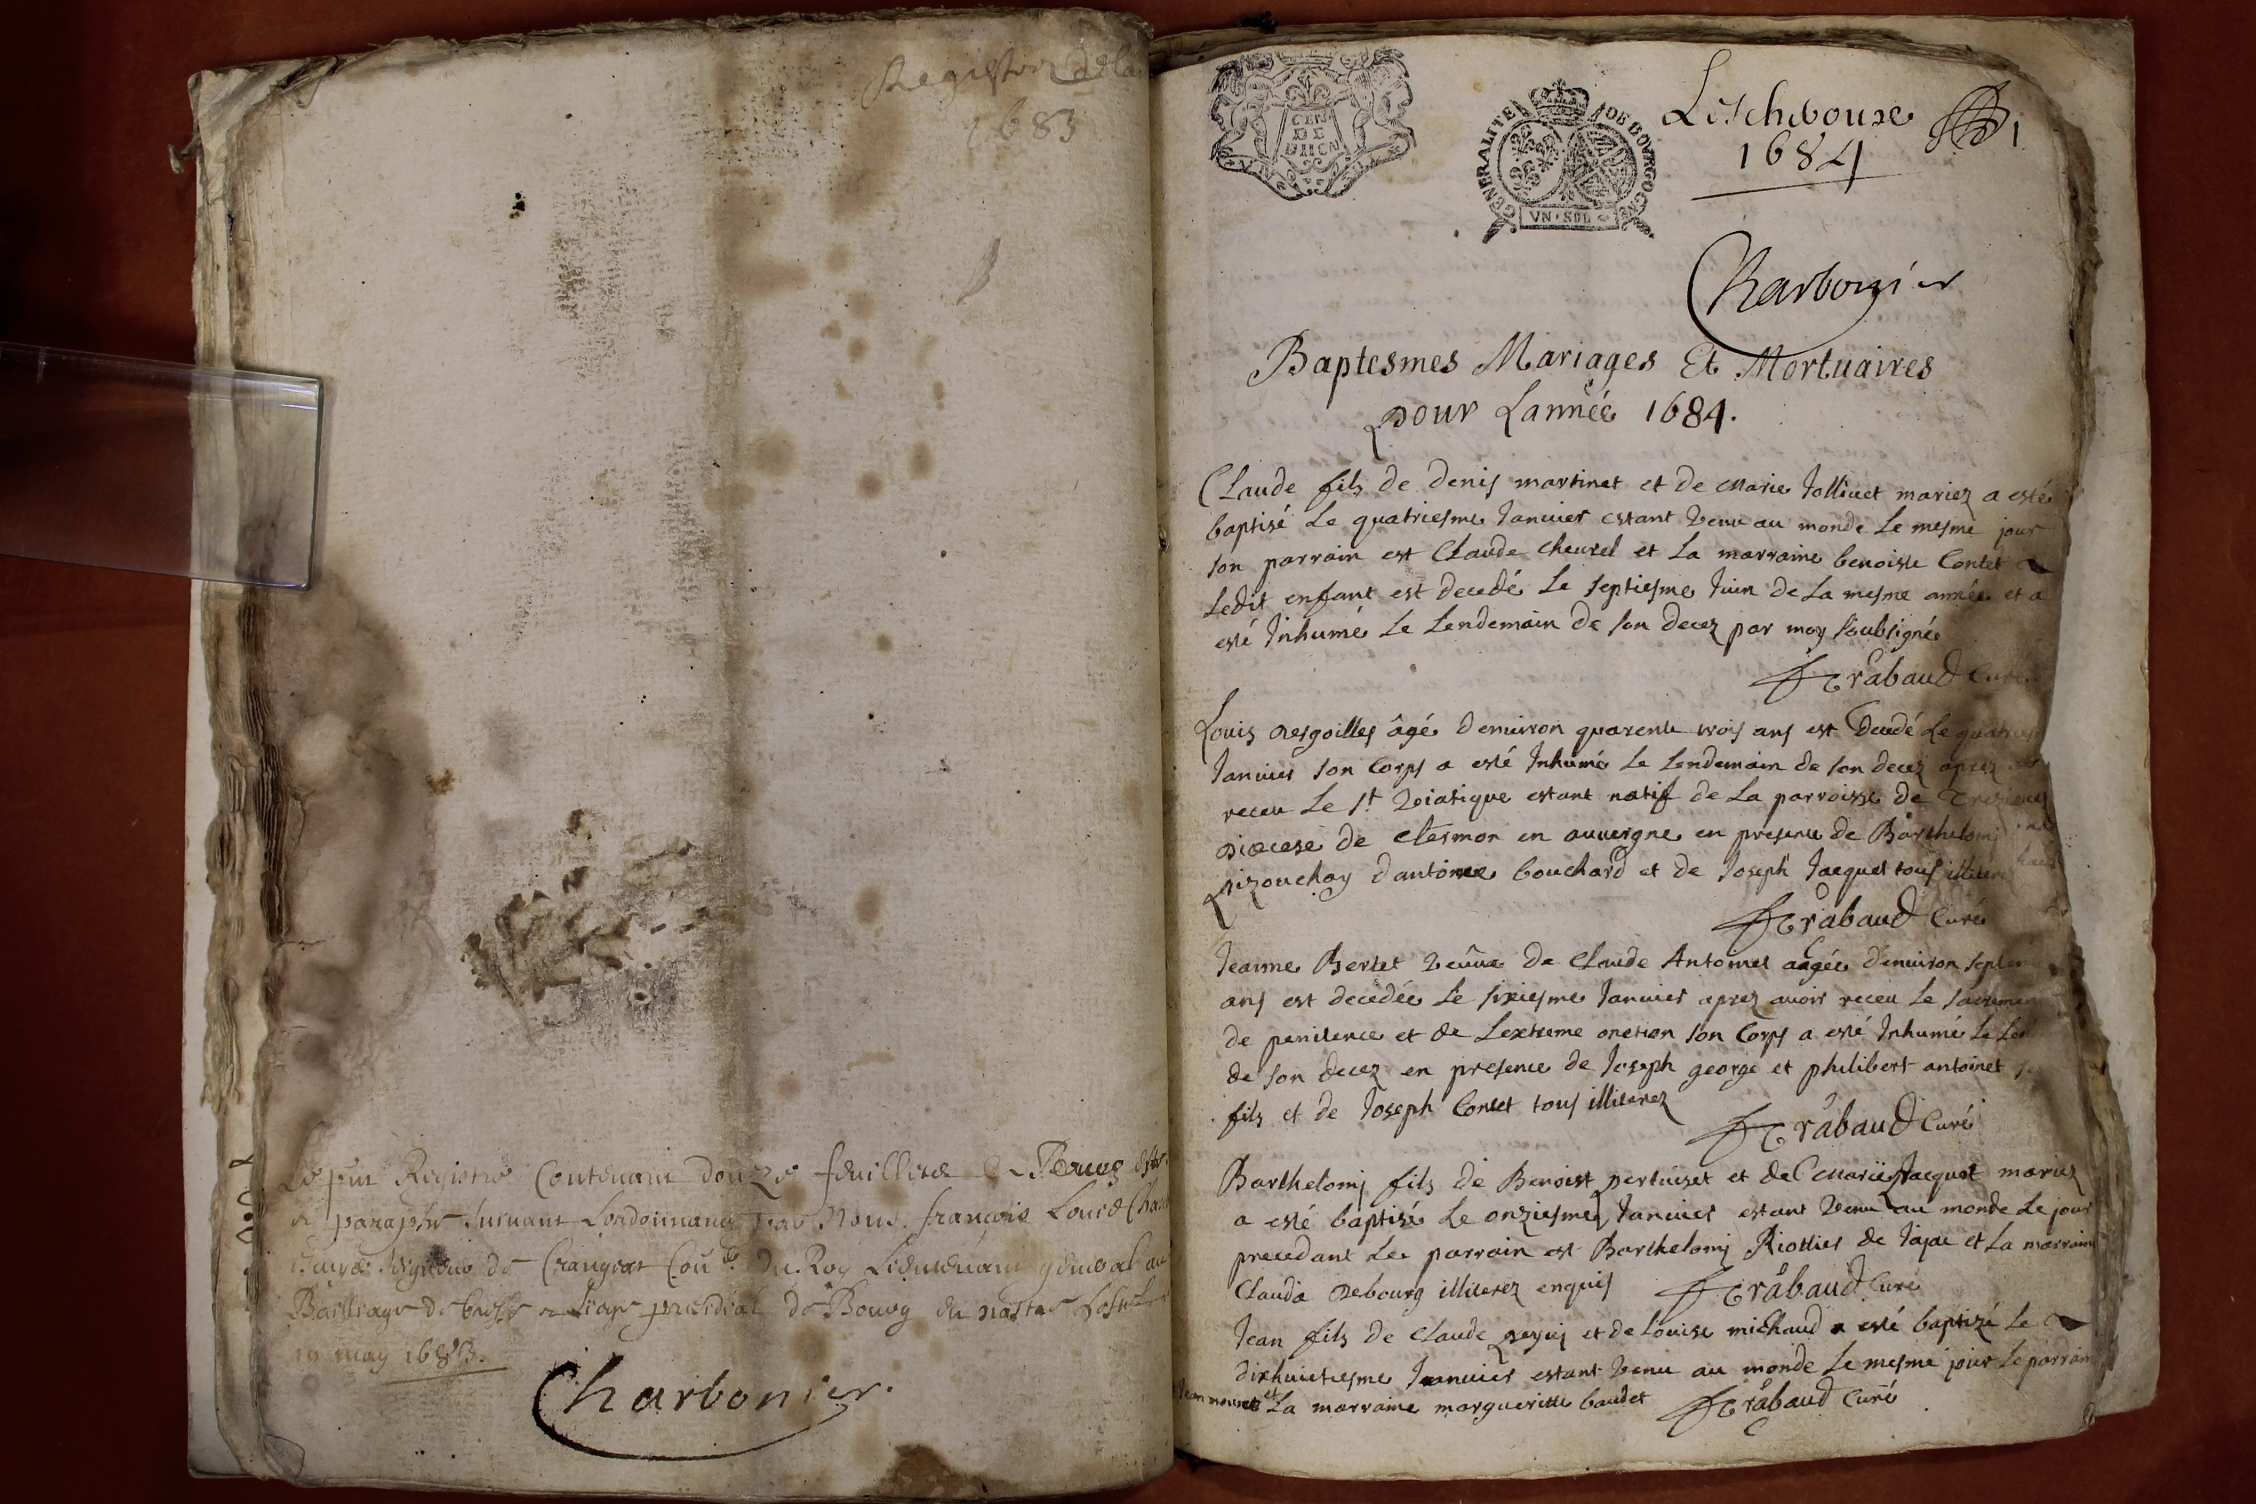 Registre de la
1683
Le pnt Registre Contenant douze feuilletz
et paraphé suivant Lordonnance par Nous françois Louis Char
seigneur de Crangeat Con.er du Roy Lieutenant general au
Bailliage de bresse et siege presidial de Bourg
may 1683.
Charbonier.
GEN
DE
DIION
GENERALITE DE BOVRGOGNE
VN·SOL
Leschevoure 1
1684
Charbonier
Baptesmes Mariages Et Mortuaires
pour Lannéé 1684.
Claude fils de Denis martinet et de Marie Jollivet mariez a esté
baptisé Le quatriesme Januier estant venu au monde Le mesme jour
son parrain est Claude cheurel et La marraine benoiste Contet
Ledit enfant est decedé Le septiesme Juin de La mesme année et a
esté Inhumé Le Lendemain de son decez par moy soubsigné
Trabaud Curé
Louis Desgoilles âgé denuiron quarente trois ans est decedé Le quatries
Januier son Corps a esté Inhumé Le Lendemain de son decez aprez
receu Le st Viatique estant natif de La parroisse de
Diocese de Clermon en auuergne en presence de Barthelomj
pizouchoy dantoine bouchard et de Joseph Jacquet tous illiterez
Trabaud Curé
Jeanne Berset veuue de Claude Antoinet aagée denuiron septen
ans est decedée Le sixiesme Januier aprez auoir receu Le sacremen
de penitence et de Lextreme onction son Corps a esté Inhumé Le Len
de son decez en presence de Joseph george et philibert antoinet
fils et de Joseph Contet tous illiterez
Trabaud Curé
Barthelomj fils de Benoist pertuiset et de Marie Jacquet mariez
a esté baptisé Le onziesme Januier estant venu au monde Le jour
precedant Le parrain est Barthelomj Riottier de Jajae et La marraine
Clauda Debourg illiterez enquis Trabaud Curé
Jean fils de Claude peguj et de Louise michaud a esté baptizé Le
dixhuictiesme Januier estant venu au monde Le mesme jour Le parrain
Jean mouret et La marraine margueritte baudet Trabaud Curé